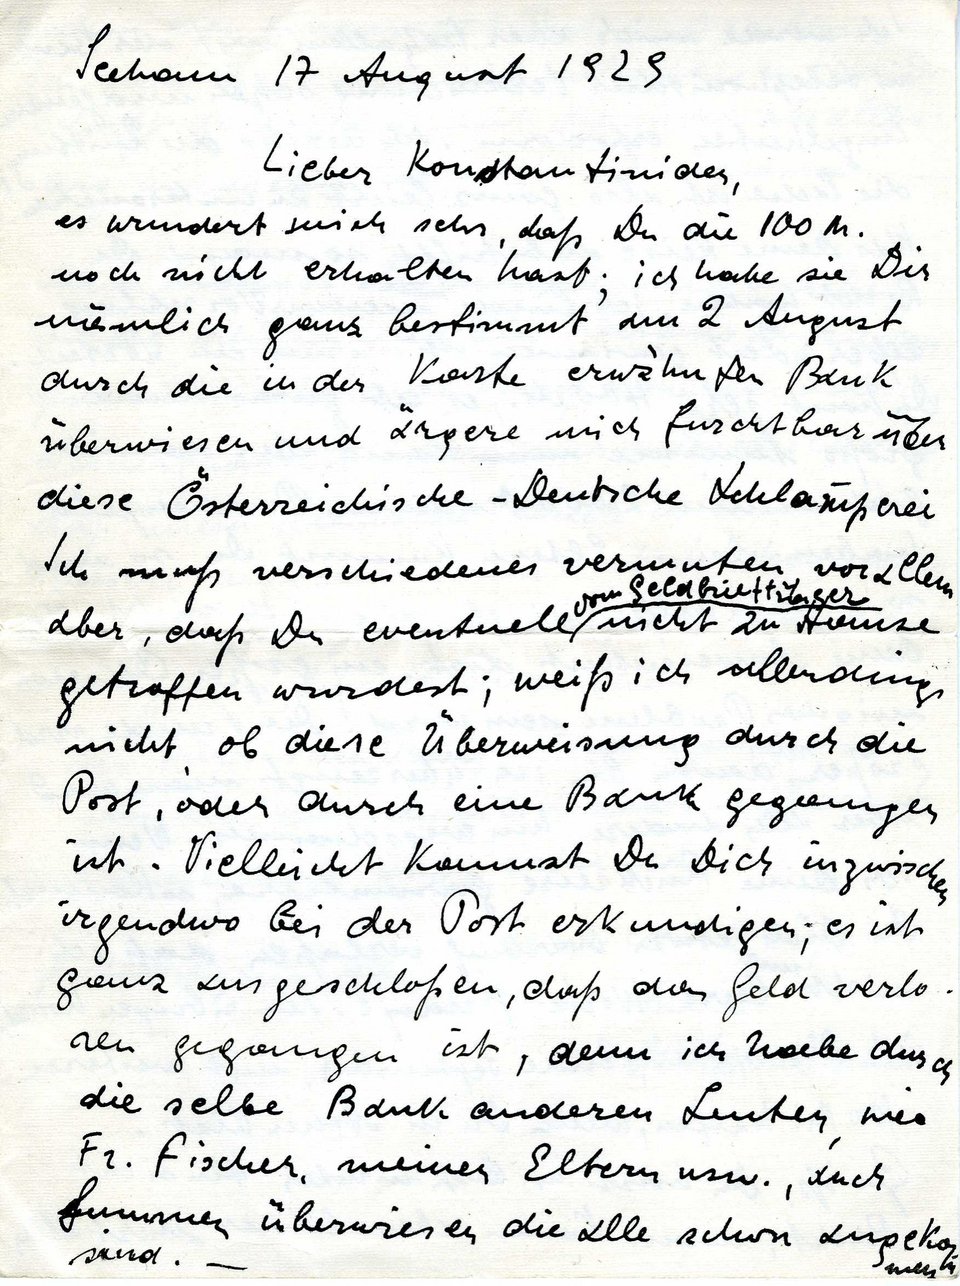 Seeham 17 August 1929
Lieber Konstantinides,
es wundert mich sehr, daß Du die 100 M.
noch nicht erhalten hast; ich habe sie Dir
nämlich ganz bestimmt am 2 August
durch die in der Karte erwähnten Bank
überwiesen und ärgere mich furchtbar über
diese Österreichische-Deutsche Schlamperei
Ich muß verschiedenes vermuten vor allem
vom Geldbriefträger
aber, daß Du eventuell nicht zu Hause
getroffen wurdest; weiß ich allerdings
nicht, ob diese Überweisung durch die
Post, oder durch eine Bank gegangen
ist. Vielleicht kannst Du Dich inzwischen
irgendwo bei der Post erkundigen; es ist
ganz ausgeschloßen, daß das Geld verlo-
ren gegangen ist, denn ich habe durch
die selbe Bank anderen Leuten, wie
Fr. Fischer, meinen Eltern usw., auch
Summen überwiesen die alle schon angekom
men
sind. —